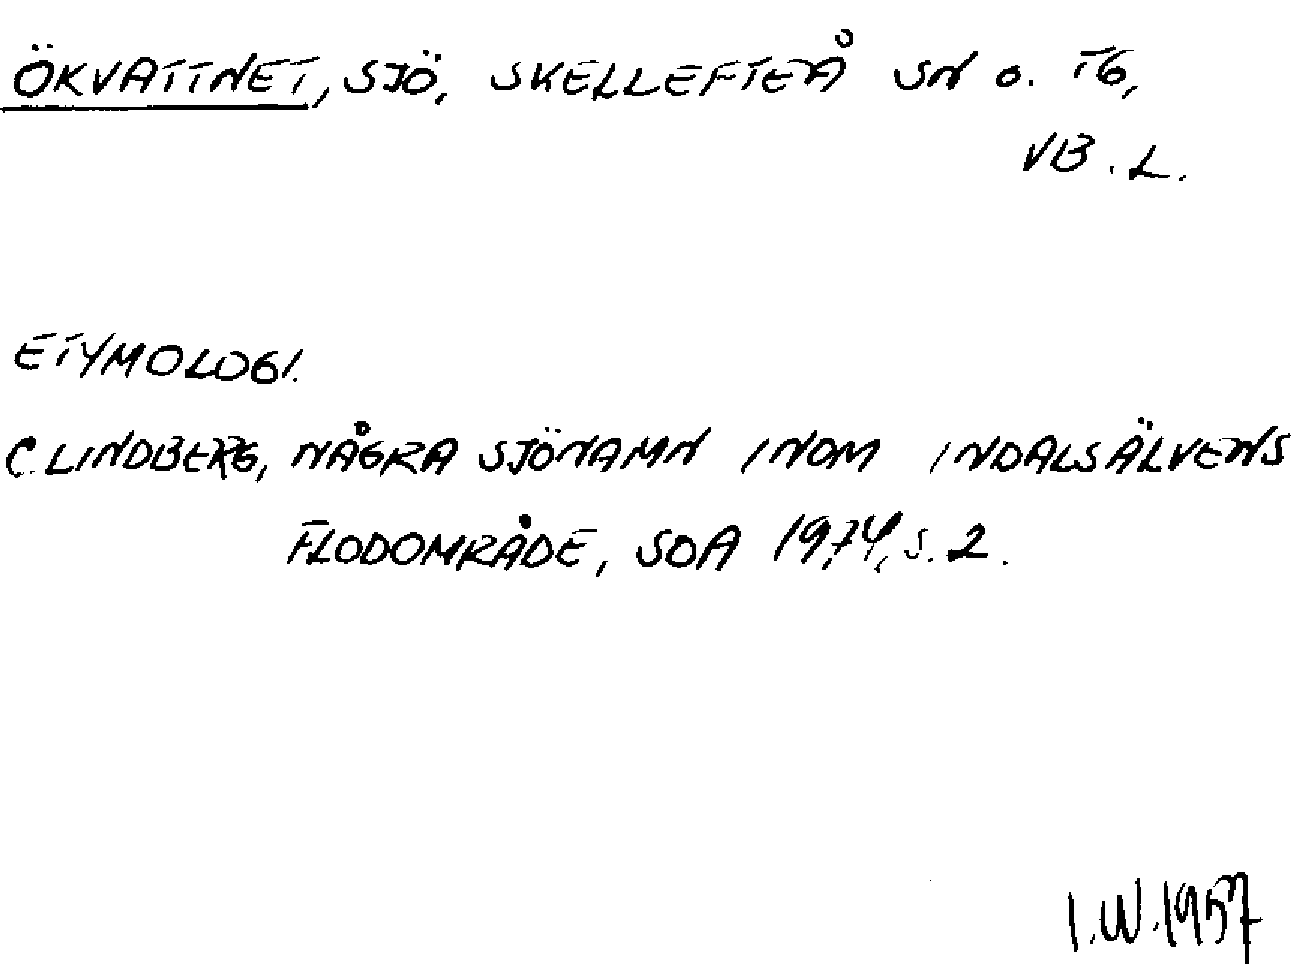 ÖKVATTNET, SJÖ, SKELLEFTEÅ SN O. TG,
VB. L.
ETYMOLOGI.
C. LINDBERG, NÅGRA SJÖNAMN INOM INDALSÄLVENS
FLODOMRÅDE, SOÅ 1974, S. 2.
I.W. 1957